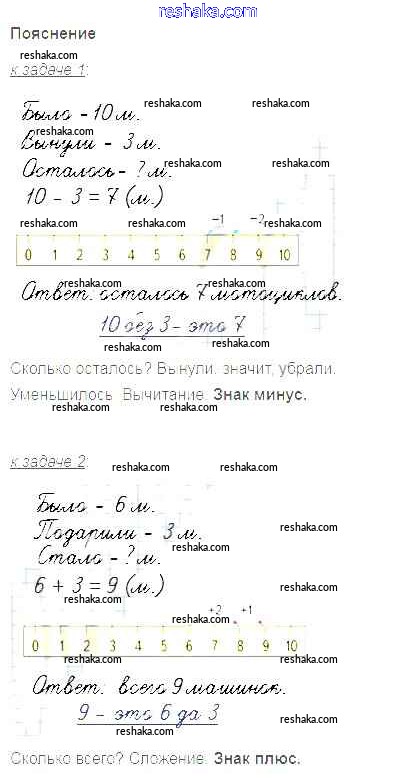 reshaka.com
Пояснение
reshaka.com
к задаче 1:
reshaka.com
Было - 10 м.
reshaka.com
Вынули - 3 м.
reshaka.com
Осталось - ? м.
reshaka.com
10 - 3 = 7 (м.)
-1 -2
reshaka.com reshaka.com reshaka.com
0 1 2 3 4 5 6 7 8 9 10
reshaka.com reshaka.com
Ответ: осталось 7 мотоциклов.
10 без 3 - это 7
reshaka.com
reshaka.com
Сколько осталось? Вынули, значит, убрали.
Уменьшилось. Вычитание. Знак минус.
reshaka.com reshaka.com
к задаче 2:
reshaka.com reshaka.com
Было - 6 м.
reshaka.com
Подарили - 3 м.
reshaka.com
Стало - ? м.
6 + 3 = 9 (м.)
reshaka.com
reshaka.com
+2 +1
reshaka.com
0 1 2 3 4 5 6 7 8 9 10
reshaka.com reshaka.com
Ответ: всего 9 машинок.
9 - это 6 да 3
reshaka.com
reshaka.com
Сколько всего? Сложение. Знак плюс.
reshaka.com